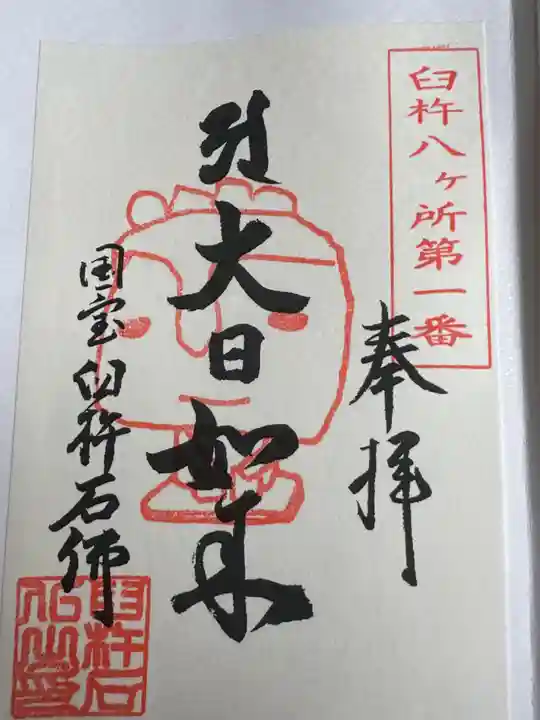 臼杵八ヶ所第一番
奉拝
大日如来
国宝臼杵石佛
臼杵石